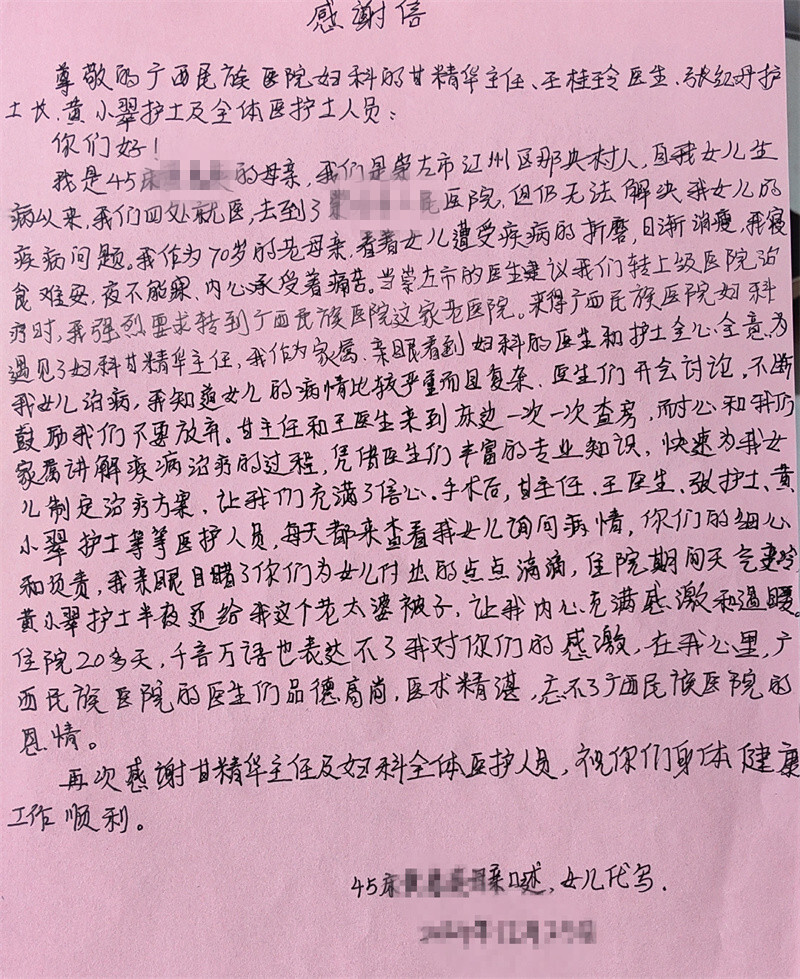 感谢信
尊敬的广西民族医院妇科的甘精华主任、王桂玲医生、张红丹护
士长、黄小翠护士及全体医护士人员：
你们好！
我是45床的母亲，我们是崇左市江州区那央村人，自我女儿生
病以来，我们四处就医，去到了医院，但仍无法解决我女儿的
疾病问题。我作为70岁的老母亲，看着女儿遭受疾病的折磨，日渐消瘦，我寝
食难安，夜不能寐、内心承受着痛苦。当崇左市的医生建议我们转上级医院治
疗时，我强烈要求转到广西民族医院这家老医院。来得广西民族医院妇科
遇见了妇科甘精华主任，我作为家属、亲眼看到妇科的医生和护士全心全意为
我女儿治病，我知道女儿的病情比较严重而且复杂、医生们开会讨论，不断
鼓励我们不要放弃。甘主任和王医生来到床边一次一次查房，耐心和我们
家属讲解疾病治疗的过程，凭借医生们丰富的专业知识，快速为我女
儿制定治疗方案，让我们充满了信心。手术后，甘主任、王医生、张护士、黄
小翠护士等等医护人员，每天都来查看我女儿询问病情，你们的细心
和负责，我亲眼目睹了你们为女儿付出的点点滴滴，住院期间天气变冷
黄小翠护士半夜还给我这个老太婆被子，让我内心充满感激和温暖。
住院20多天，千言万语也表达不了我对你们的感激，在我心里，广
西民族医院的医生们品德高尚，医术精湛，忘不了广西民族医院的
恩情。
再次感谢甘精华主任及妇科全体医护人员，祝你们身体健康
工作顺利。
45床亲口述，女儿代写.